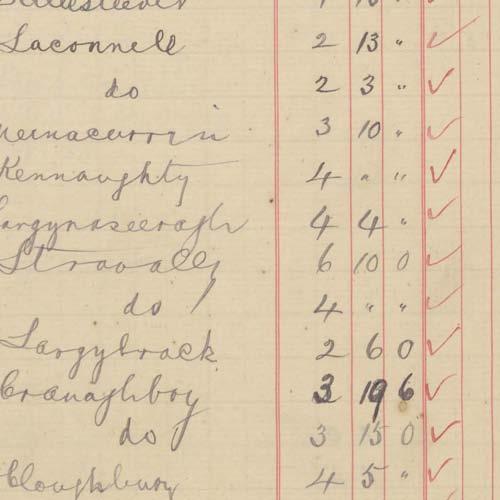 Laconnell 2 13 "
do 2 3 "
3 10 "
Kennaughty 4 " "
Largynaseeragh 4 4 "
Stravally 6 10 0
do 4 " "
Largybrack 2 6 0
Cranaghboy 3 19 6
do 3 15 0
Cloughbuoy 4 5 "